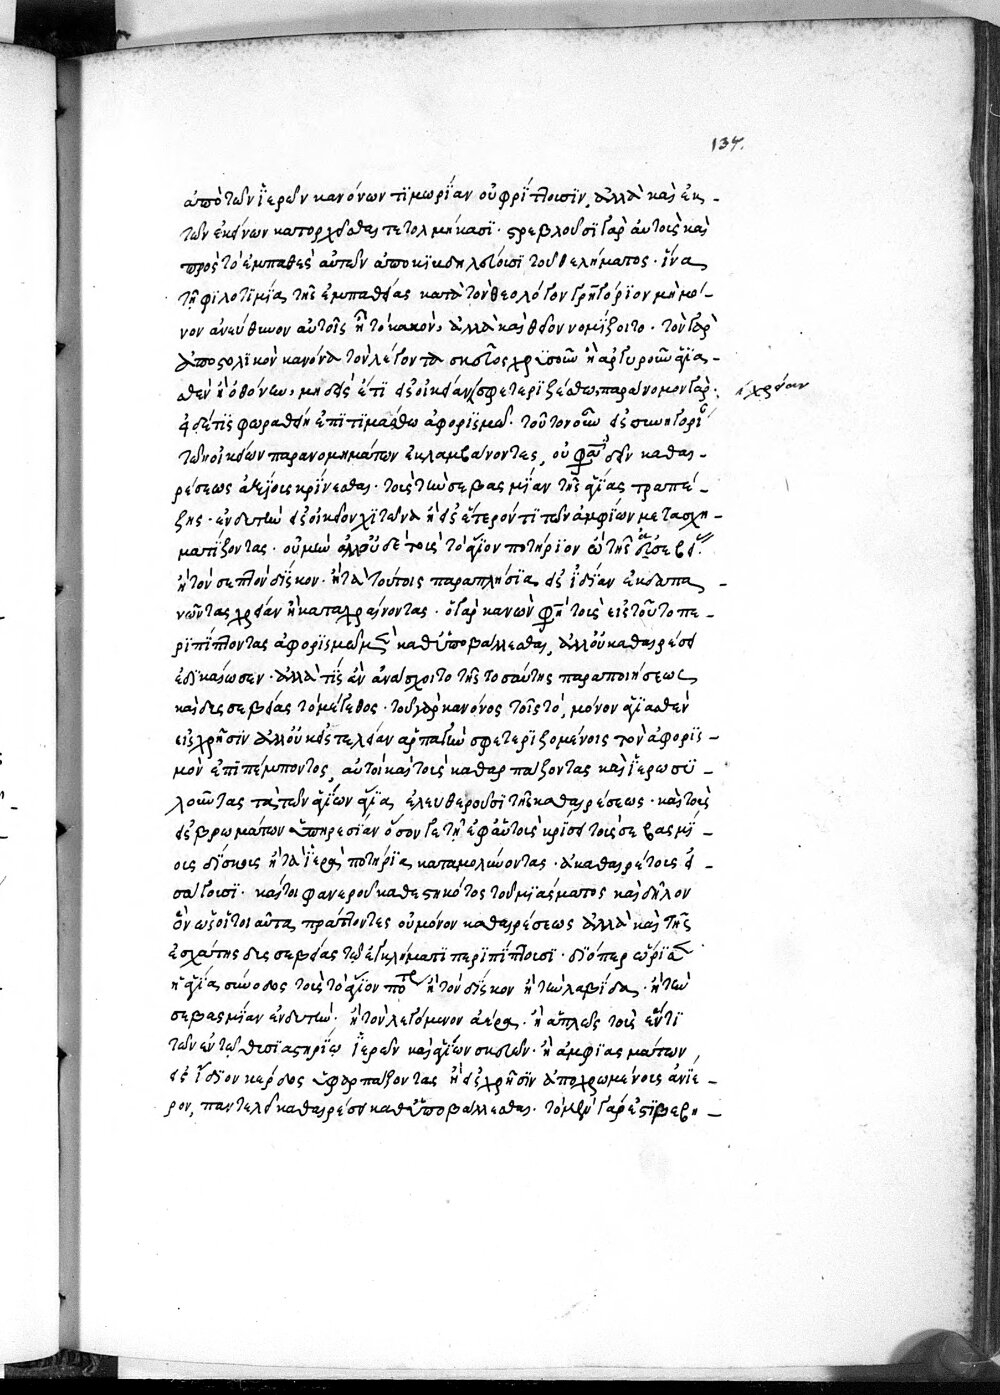 137.
ἀπὸ τῶν ἱερῶν κανόνων τιμωρίαν οὐ φρίττουσιν, ἀλλὰ καὶ ἐκ
τῶν ἐκείνων κατορχεῖσθαι τετολμήκασι· στρεβλοῦσι γὰρ αὐτοὺς καὶ
πρὸς τὸ ἐμπαθὲς αὐτῶν ἀποκιβδηλεύουσι τοῦ θελήματος· ἵνα
τῇ φιλοτιμίᾳ τῆς ἐμπαθείας κατὰ τὸν θεολόγον γρηγόριον μὴ μό-
νον ἀνεύθυνον αὐτοῖς ἦ τὸ κακόν, ἀλλὰ καὶ θεῖον νομίζοιτο· τὸν γὰρ
ἀποστολικὸν κανόνα τὸν λέγοντα σκεῦος χρυσοῦν ἢ ἀργυροῦν ἁγια-
σθὲν ἢ ὀθόνην, μηδεὶς ἔτι εἰς οἰκείαν σφετεριζέσθω, παράνομον γάρ· χρείαν
εἰ δέ τις φωραθείη ἐπιτιμάσθω ἀφορισμῷ· τοῦτον οὖν εἰς συνηγορί
τῶν οἰκείων παρανομημάτων ἐκλαμβάνοντες, οὔ φασι δεῖν καθαι-
ρέσεως ἀξίους κρίνεσθαι· τοὺς τὴν σεβασμίαν τῆς ἁγίας τραπέ-
ζης· ἐνδυτὴν εἰς οἰκεῖον χιτῶνα ἢ εἰς ἕτερόν τι τῶν ἀμφίων μετασχη-
ματίζοντας· οὐ μὴν ἀλλ' οὐδὲ τοὺς τὸ ἅγιον ποτήριον ὢ τῆς ἀσεβεί
ἢ τὸν σεπτὸν δίσκον· ἢ τὰ τούτοις παραπλήσια εἰς ἰδίαν ἐκδαπα-
νῶντας χρείαν ἢ καταχραίνοντας· ὁ γὰρ κανών φησι τοὺς εἰς τοῦτο πε-
ριπίπτοντας ἀφορισμῷ καθυποβάλλεσθαι, ἀλλ' οὐ καθαιρέσει
ἐδικαίωσεν· ἀλλὰ τίς ἂν ἀνάσχοιτο τῆς τοσαύτης παραποιήσεως
καὶ δυσσεβείας τὸ μέγεθος· τοῦ γὰρ κανόνος τοῖς τὸ, μόνον ἁγιασθὲν
εἰς χρῆσιν ἀλλ' οὐκ εἰς τελείαν ἁρπαγὴν σφετεριζομένοις τὸν ἀφορισ-
μὸν ἐπιπέμποντος, αὐτοὶ καὶ τοὺς καθαρπάζοντας καὶ ἱεροσυ-
λοῦντας τὰ τῶν ἁγίων ἅγια ἐλευθεροῦσι τῆς καθαιρέσεως· καὶ τοὺς
εἰς βρωμάτων ὑπηρεσίαν ὅσον γε τῇ ἐφ' αὑτοῖς κρίσει τοὺς σεβασμί-
ους δίσκους ἢ τὰ ἱερὰ ποτήρια καταμολύνοντας· ἀκαθαιρέτους εἰ-
σάγουσι· καίτοι φανεροῦ καθεστηκότος τοῦ μιάσματος καὶ δῆλον
ὂν ὡς οἵ γε τοιαῦτα πράττοντες οὐ μόνον καθαιρέσεως ἀλλὰ καὶ τῆς
ἐσχάτης δυσσεβείας τῷ ἐγκλήματι περιπίπτουσι· διόπερ ὥρισε
ἡ ἁγία σύνοδος τοὺς τὸ ἅγιον ποτήρ ἢ τὸν δίσκον ἢ τὴν λαβίδα· ἢ τὴν
σεβασμίαν ἐνδυτήν· ἢ τὸν λεγόμενον ἀέρα· ἢ ἁπλῶς τοὺς ἕν τι
τῶν ἐν τῷ θυσιαστηρίῳ ἱερῶν καὶ ἁγίων σκευῶν· ἢ ἀμφιασμάτων,
εἰς ἴδιον κέρδος ὑφαρπάζοντας ἢ εἰς χρῆσιν ἀποχρωμένους ἀνίε-
ρον, παντελεῖ καθαιρέσει καθυποβάλλεσθαι· τὸ μὲν γάρ ἐστι βεβη-